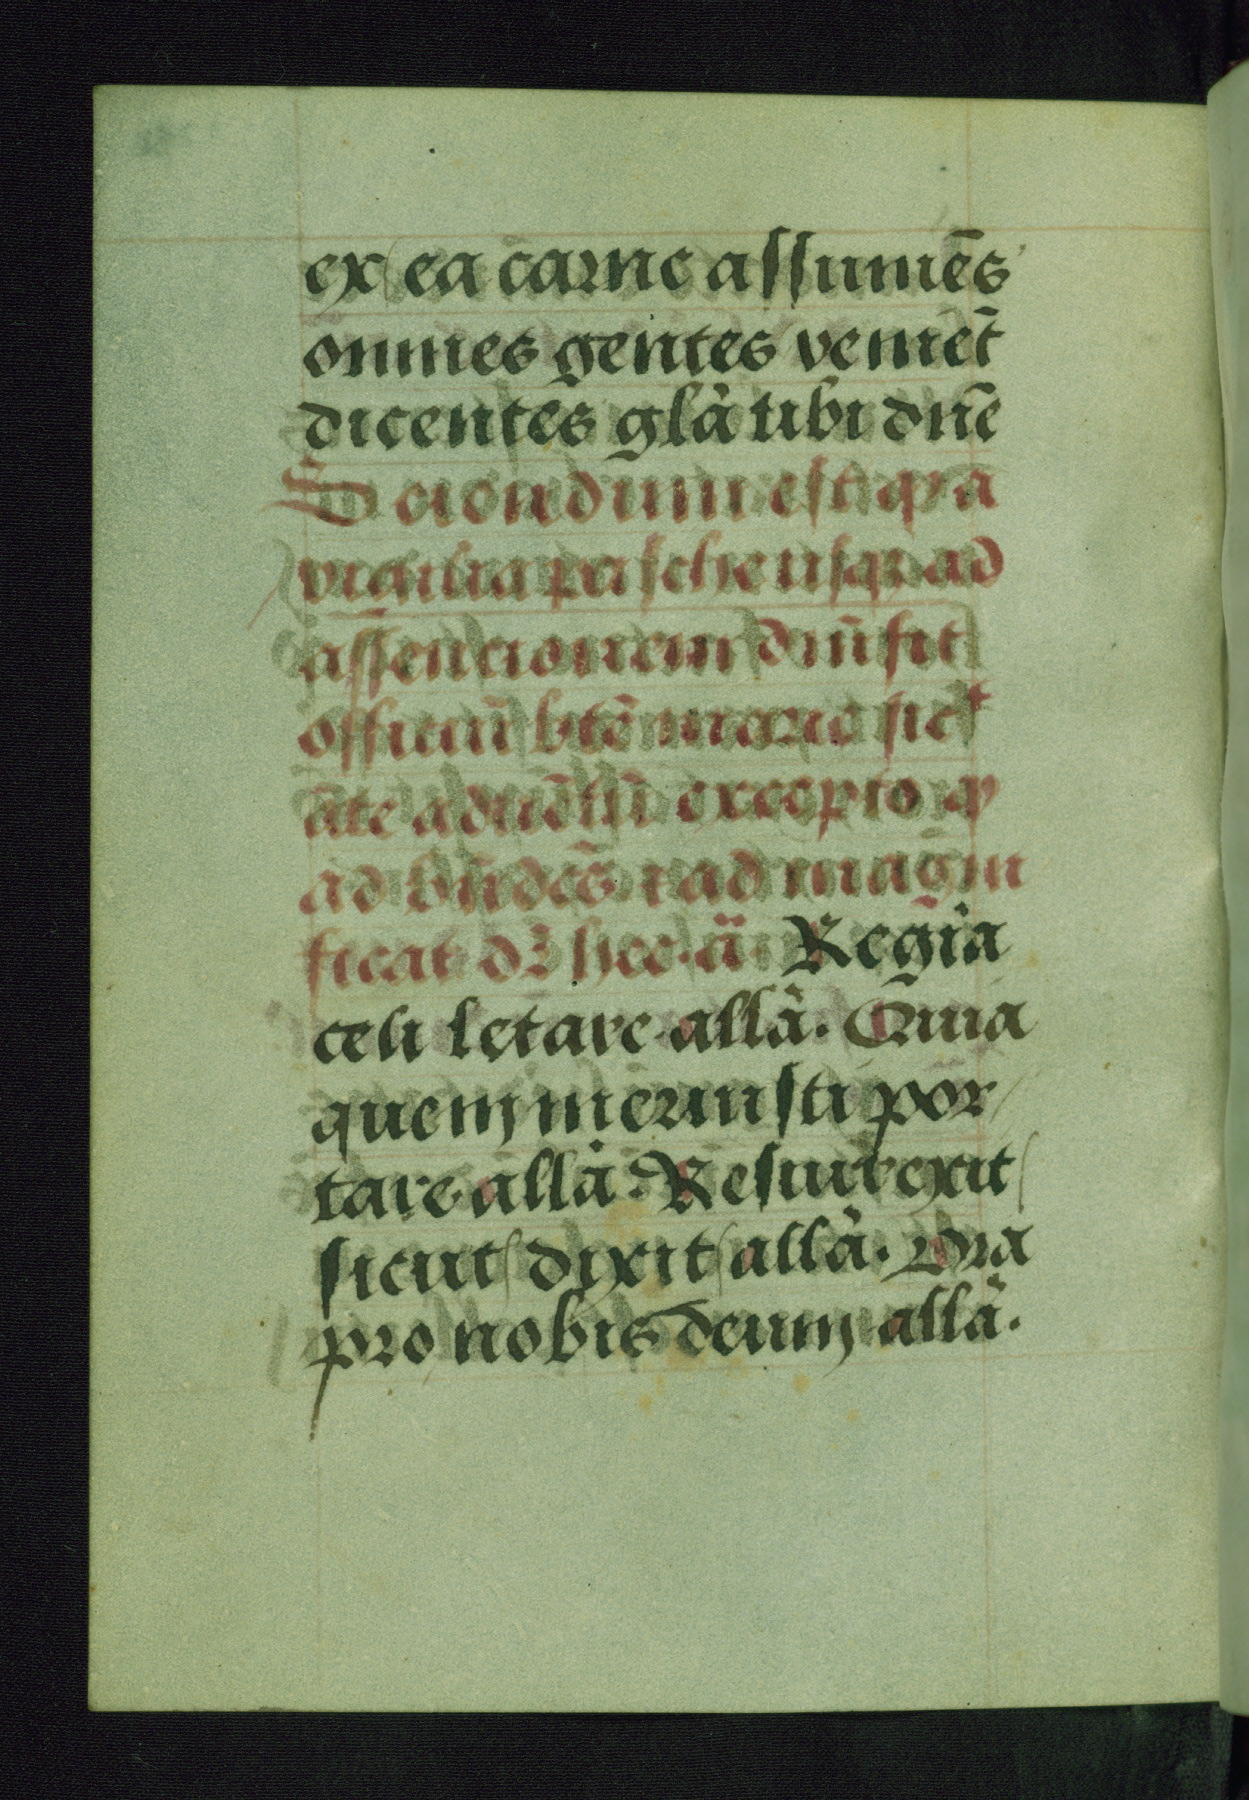 ex ea carne assumēs
omnes gentes veniēt
dicentes glā tibi dnē
Sciendum est qꝫ a
vigilia pasche usqꝫ ad
assencionem dnī fit
officiū btē marie sict
āte aduētū excepto qꝫ
ad bn̄dc̄s ⁊ ad magni
ficat dꝛ hec ā. Regīa
celi letare allā. Quia
quem meruisti por
tare allā. Resurrexit
sicut dixit allā. Ora
pro nobis deum allā.